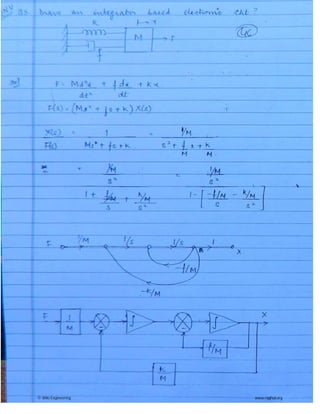 Q3 Draw an integrator based electronic ckt ?
K → x
M → F
f
Sol
F = Md²x/dt² + f dx/dt + kx
F(s) = (Ms² + fs + K) X(s)
X(s)/F(s) = 1/(Ms² + fs + K) = (1/M)/(s² + f/M s + K/M)
= (1/M)/s² / (1 + (f/M)/s + (K/M)/s²) = (1/M)/s² / (1 - [(-f/M)/s - (K/M)/s²])
F 1/M 1/s 1/s 1 X
-f/M
-K/M
F 1/M ∫ ∫ X
f/M
K/M
www.reghut.org